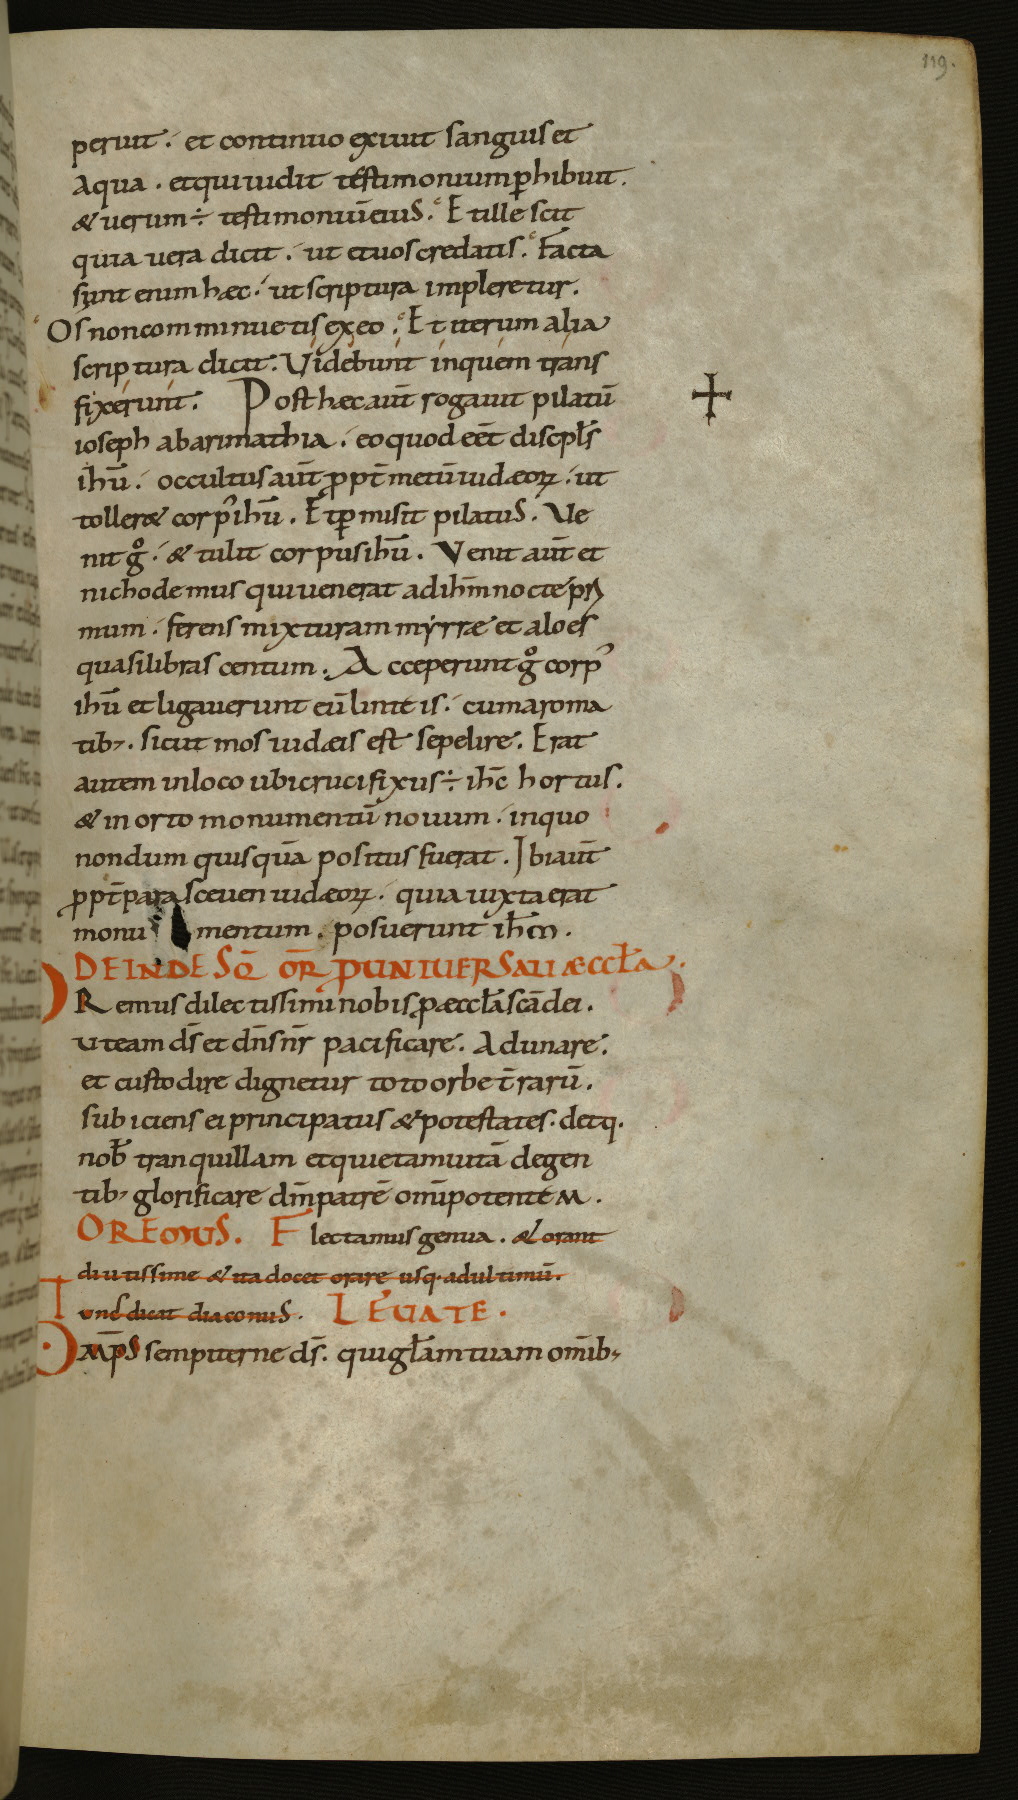 119.
peruit. et continuo exiuit sanguis et
Aqua. et qui uidit testimonium ꝑhibuit.
& uerum ÷ testimoniū eius. Et ille scit
quia uera dicit. ut et uos credatis. Facta
sunt enim hæc. ut scriptura impleretur.
Os non comminuetis ex eo. Et iterum alia
scriptura dicit. Videbunt in quem trans
fixerunt. Post hæc aūt rogauit pilatū
ioseph ab arimathia. eo quod eēt discpl̄s
ihū. occultus aūt ꝓpt̄ metū iudæoꝝ. ut
toller& corpꝰ ihū. Et ꝑmisit pilatus. Ve
nit gͦ. & tulit corpus ihū. Venit aūt et
nichodemus qui uenerat ad ihm̄ nocte pri
mum. ferens mixturam myrræ et aloes
quasi libras centum. Acceperunt gͦ corpꝰ
ihū et ligauerunt eū linteis. cum aroma
tib;. sicut mos iudæis est sepelire. Erat
autem in loco ubi crucifixus ÷ ihc̄ hortus.
& in orto monumentū nouum. in quo
nondum quisquā positus fuerat. Ibi aūt
ꝓpt̄ parasceuen iudæoꝝ. quia iuxta erat
monumentum. posuerunt ihm̄.
DEINDE SQ̄ OR̄ ꝓ UNIUERSALI ÆCCL̄A.
Remus dilectissimi nobis ꝓ æccl̄a sc̄a dei.
ut eam ds̄ et dn̄s nr̄ pacificare. Adunare.
et custodire dignetur toto orbe t̄rarū.
subiciens ei principatus & potestates. detq.
nob̄ tranquillam et quietam uitā degen
tib; glorificare dm̄ patrē omīpotentem.
OREMUS. Flectamus genua. & orant
diutissime & ita docet orare usq. ad ultimū.
und̄ dicat diaconus. LEUATE.
Omp̄s sempiterne ds̄. qui gl̄am tuam omīb;